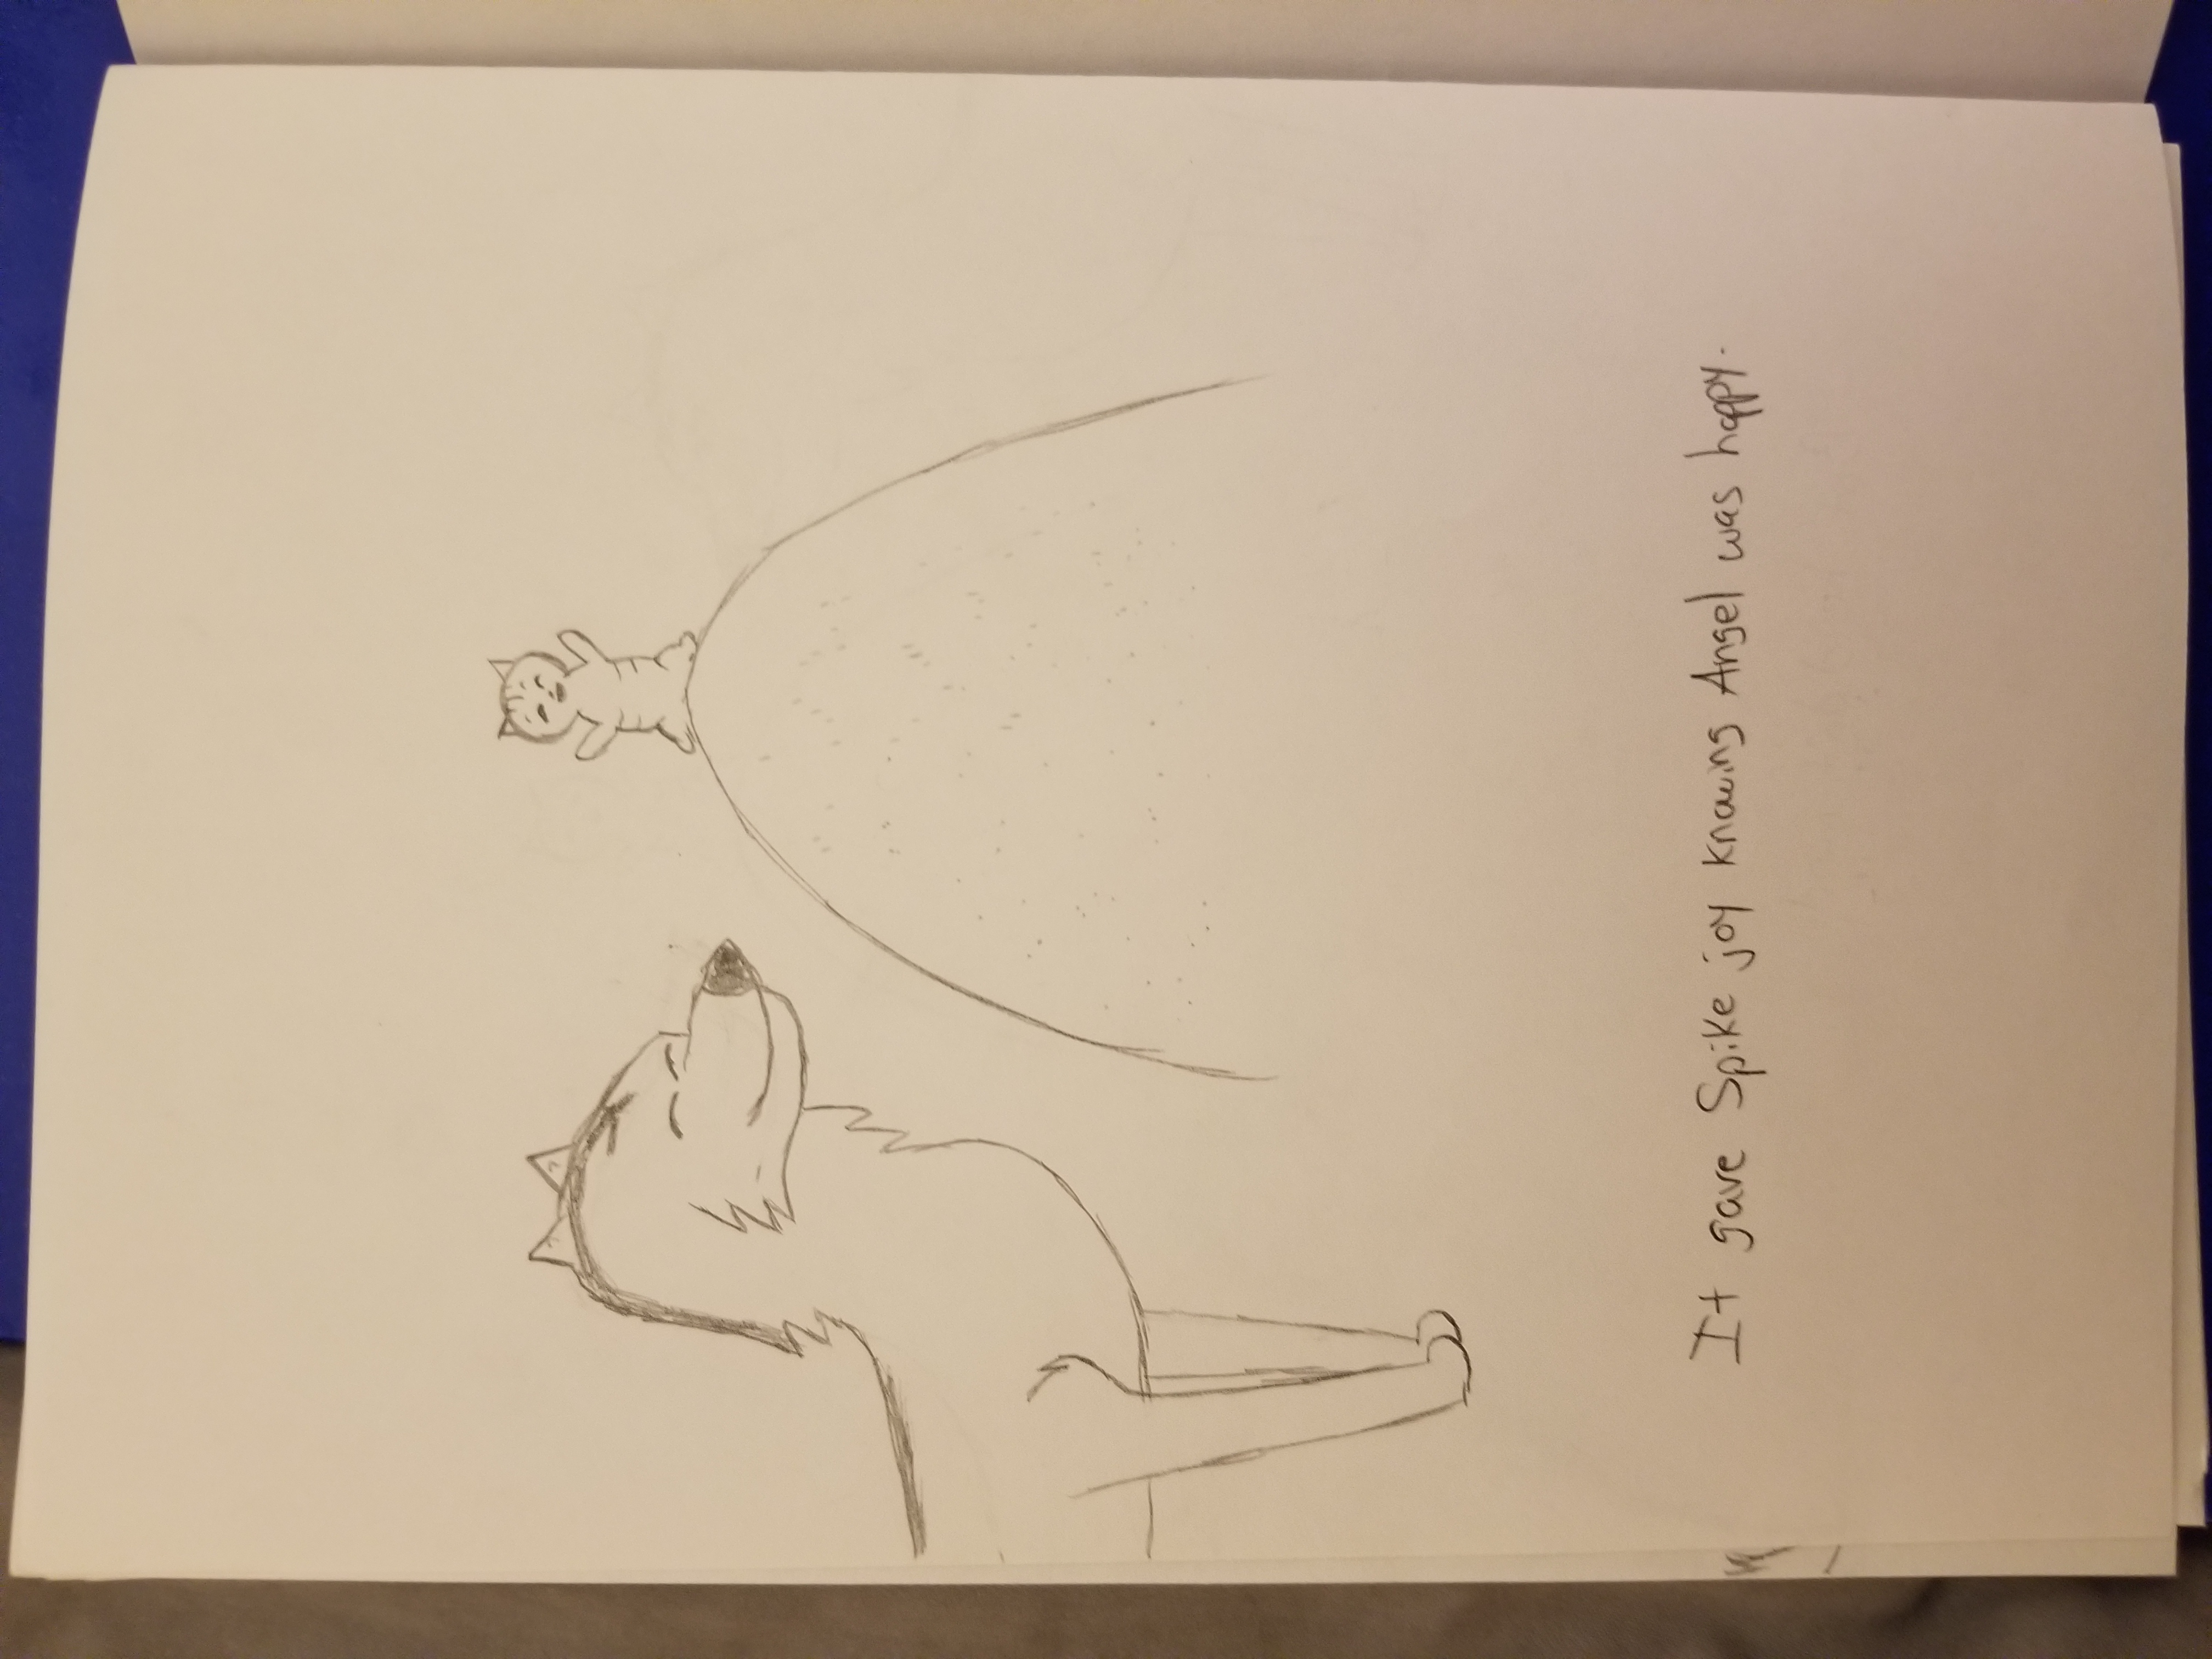 It gave Spike joy knowing Angel was happy.